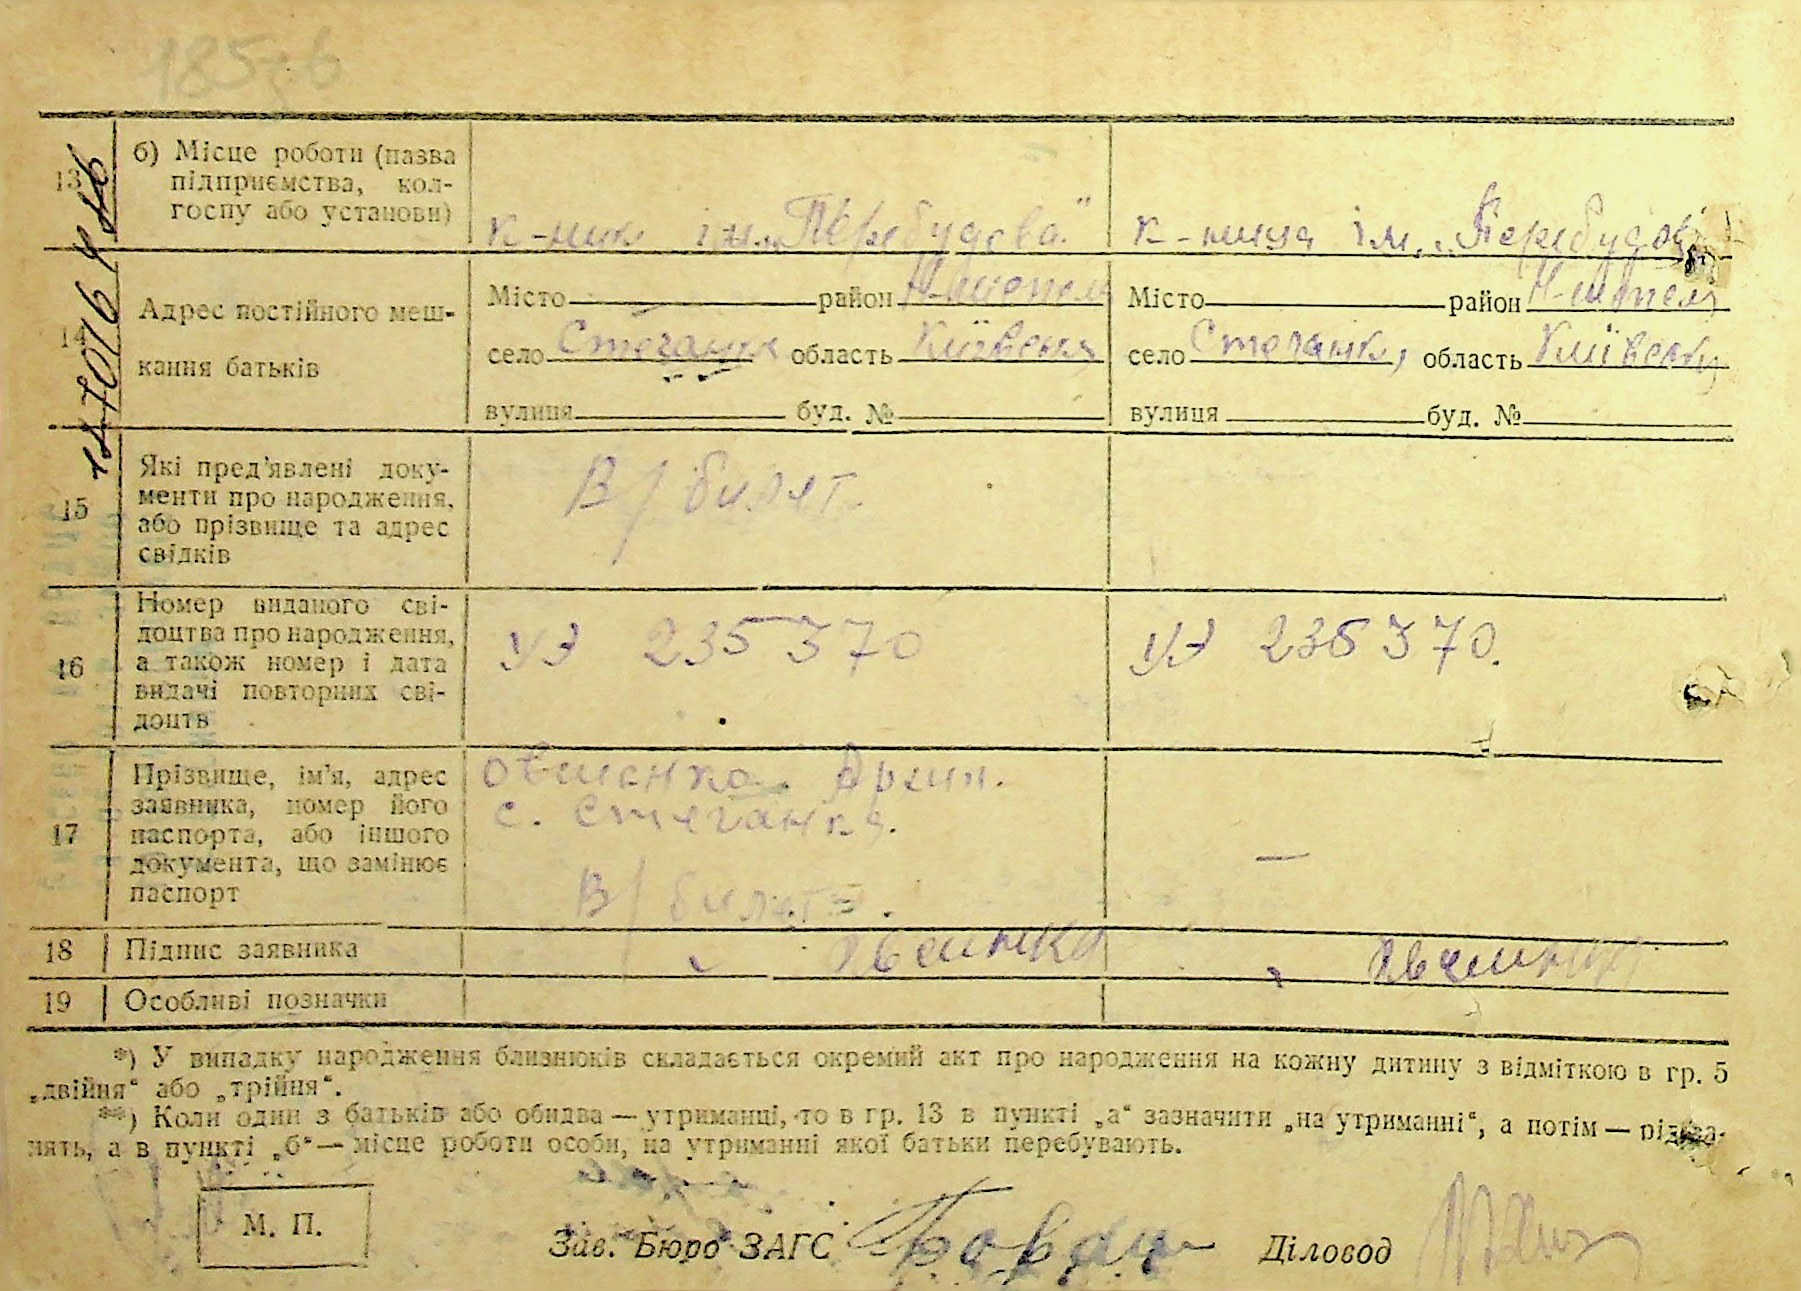 185
13
б) Місце роботи (назва
підприємства, кол-
госпу або установи)
к-ник ім. „Перебудова"
к-ниця ім. „Перебудова
14
Адрес постійного меш-
кання батьків
Місто район
Місто район
село Стеганка область Київська
село Стеганка, область Київська
вулиця буд. №
вулиця буд. №
15
Які пред'явлені доку-
менти про народження,
або прізвище та адрес
свідків
В/билет.
16
Номер виданого сві-
доцтва про народження,
а також номер і дата
видачі повторних сві-
доцтв
УЭ 235370
УЭ 235370.
17
Прізвище, ім'я, адрес
заявника, номер його
паспорта, або іншого
документа, що замінює
паспорт
с. Стеганка.
В/билет.
—
18
Підпис заявника
19
Особливі позначки
*) У випадку народження близнюків складається окремий акт про народження на кожну дитину з відміткою в гр. 5
„двійня“ або „трійня“.
**) Коли один з батьків або обидва — утриманці, то в гр. 13 в пункті „а“ зазначити „на утриманні“, а потім —
нять, а в пункті „б“ — місце роботи особи, на утриманні якої батьки перебувають.
М. П.
Зав. Бюро ЗАГС
Діловод